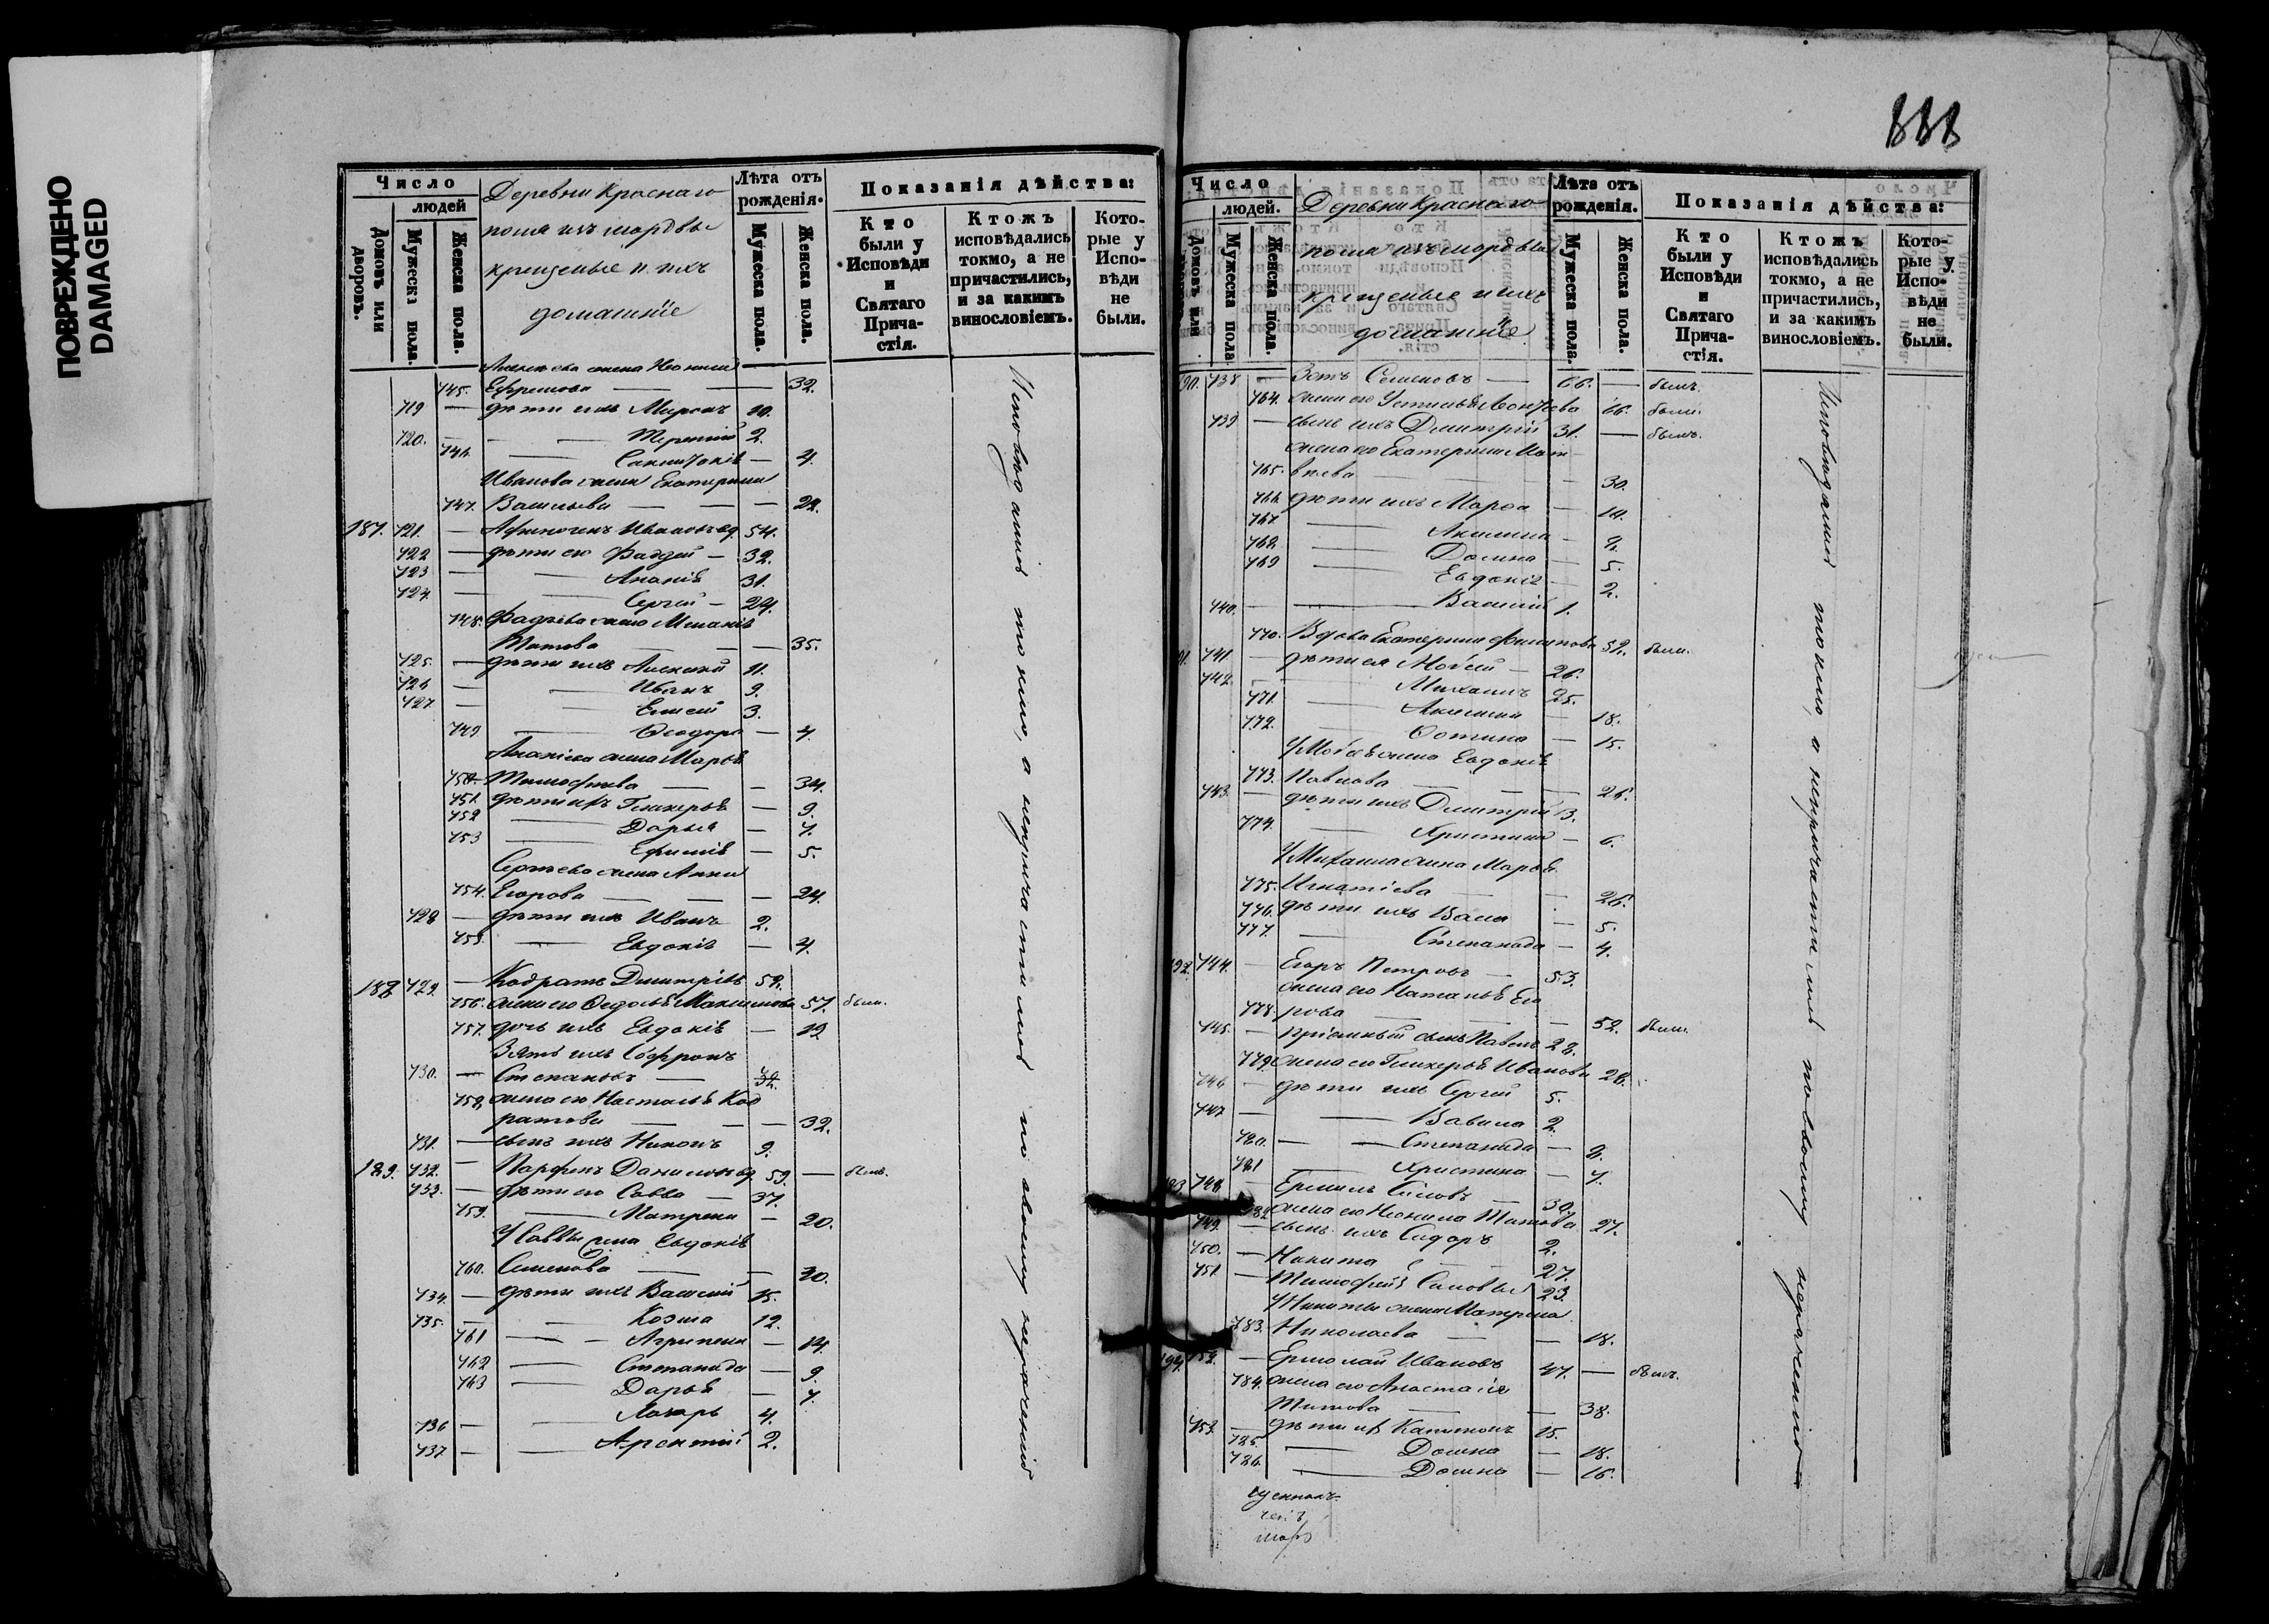 ПОВРЕЖДЕНО
DAMAGED
Число
людей
Домовъ или дворовъ.
Мужеска пола.
Женска пола.
Деревни Краснаго
крещеные и ихъ
домашніе
Лѣта отъ рожденія.
Мужеска пола.
Женска пола.
Показанія дѣйства:
Кто были у Исповѣди и Святаго Причастія.
Ктожъ исповѣдались токмо, а не причастились, и за какимъ винословіемъ.
Которые у Исповѣди не были.
745. Ефремова — — 32.
719 — дѣти ихъ Миронъ 10.
720. — — Терентій 2.
746. — 4.
Иванова жена Екатерина
747. Васильева — — 22.
187. 721. — Афиногенъ Ивановъ вд. 54.
722 — дѣти его Фаддей — 32.
723 — — Ананія 31.
724. — — Сергей — 24.
748. Фадѣева жена Меланія
Титова — — 35.
725. — дѣти ихъ Алексей 11.
726 — — Иванъ 9.
727. — — Елисей 3.
749 — Ѳеодора — 4.
Ананіева жена Марья
750. Тимофеева — — 34.
751. дѣти ихъ Гликерья — 9.
752 — Дарья — 7.
753 — Ефимія — 5.
Сергѣева жена Анна
754. Егорова — — 24.
728 — дѣти ихъ Иванъ 2.
755. — Евдокія — 4.
188 729. — Кодратъ Дмитріевъ 59.
756. жена его Федосья Максимова 57. была.
757. дочь ихъ Евдокія — 19
Зять ихъ Софронъ
730. — Степановъ — 32.
758. жена его Настасья Код
ратова — — 32.
731. — сынъ ихъ Никонъ 9.
189. 732. — Парфенъ Даниловъ вд. 59. — былъ.
733. — дѣти его Савва — 37.
759. — Матрена — 20.
У Саввы жена Евдокія
760. Семенова — — 30.
734. — дѣти ихъ Василій 15.
735. — — Козма 12.
761 — — Агрипена — 14.
762 — Степанида — 9.
763 — Дарья — 7.
736 — — Лазарь 4.
737 — — Арсентій 2.
Исповѣдались токмо, а непричастились по своему нерачению
Число
людей.
Домовъ или
Мужеска пола
Женска пола.
Деревни Краснаго
крещеные и ихъ
домашніе
Лѣта отъ рожденія.
Мужеска пола.
Женска пола.
Показанія дѣйства:
Кто были у Исповѣди и Святаго Причастія.
Ктожъ исповѣдались токмо, а не причастились, и за какимъ винословіемъ.
Которые у Исповѣди не были.
90. 738 — Зотъ Семеновъ — 66. — былъ.
764. жена его Устинья Леонтьева 66. была.
739 — сынъ ихъ Дмитрій 31. — былъ.
жена его Екатерина Мат
765. вѣева — 30.
766. дѣти ихъ Марѳа — 10.
767 — Акилина —
768 — Домна — 5.
769 — Евдокія — 2.
740. — — Василій 1.
770. Вдова Екатерина Филипова 52. была.
91. 741 — дѣти ея Мовсей — 26.
742. — Михаилъ 25.
771. — Акилина — 18.
772. — Фотина — 15.
У Мовсѣя жена Евдокія
773. Павлова — — 26.
743. — дѣти ихъ Дмитрій 3.
774. — Христина — 6.
У Михаила жена Марья
775. Игнатіева — 26.
776. дѣти ихъ Васса — 5.
777. — Степанида — 4.
192. 744. — Егоръ Петровъ — 53.
жена его Наталья Его
778 рова — — 52. была.
745. — пріемный сынъ Павелъ 28.
779. жена его Гликерья Иванова 28.
746 — дѣти ихъ Сергей 5.
747 — — Вавила 2.
780. — — Степанида — 9.
781 — Христина — 7.
193 748 — Ермилъ Силовъ — 30.
782 жена его Неонила Титова 27.
749. — сынъ ихъ Сидоръ 2.
750. — Никита — 27.
751. — Тимофей Силовы 23.
У Никиты жена Матрена
783. Николаева — — 18.
194. 752. — Ермолай Ивановъ 47. — былъ.
784. жена его Анастасія
Титова — — 38.
753. — дѣти их Капитонъ 15.
785. — Домна — 18.
786. — Домна — 16.
Исповѣдались токмо, а непричастились по своему нерачению